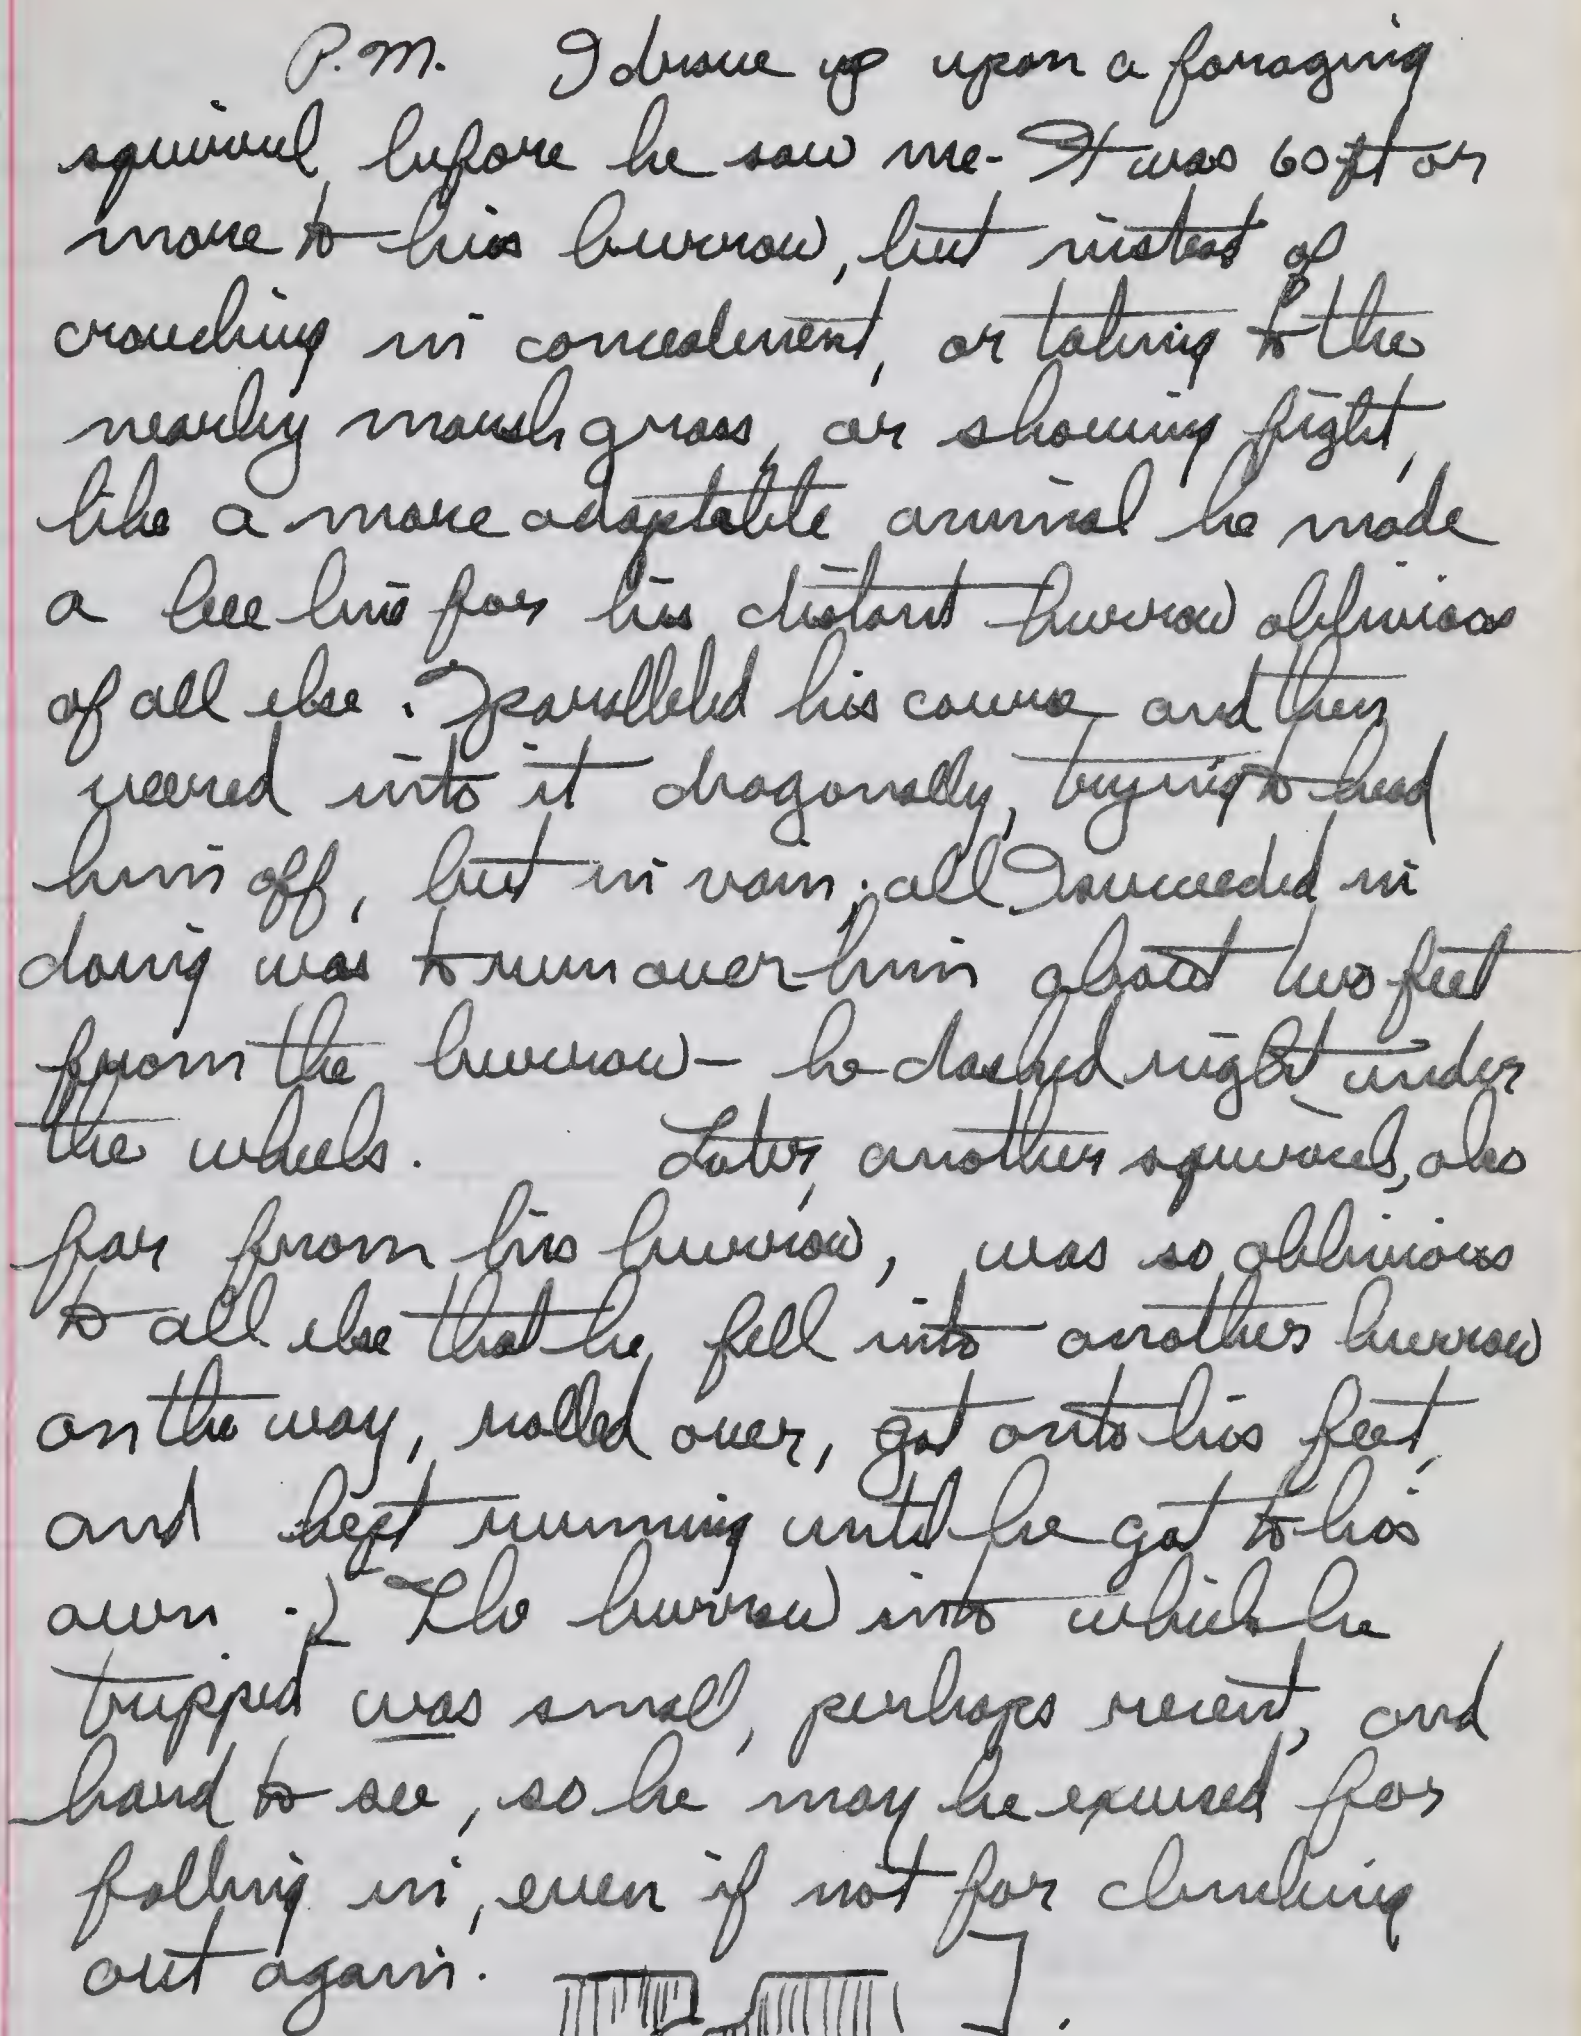 P.M. I drove up upon a foraging
squirrel before he saw me - It was 60 ft or
more to his burrow, but instead of
crouching in concealment, or taking to the
nearby marsh grass, or showing fight,
like a more adaptable animal he made
a bee line for his distant burrow oblivious
of all else. I paralleled his course and then
veered into it diagonally, trying to head
him off, but in vain; all I succeeded in
doing was to run over him about two feet
from the burrow - he dashed right under
the wheels. Later, another squirrel, also
far from his burrow, was so oblivious
to all else that he fell into another burrow
on the way, rolled over, got onto his feet,
and kept running until he got to his
own. [ The burrow into which he
tripped was small, perhaps recent, and
hard to see, so he may be excused for
falling in, even if not for climbing
out again. ]